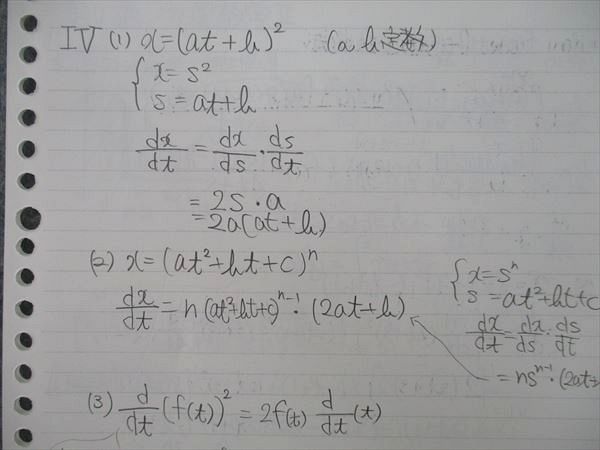 IV (1) x=(at+b)² (a b定数)
{ x=s²
s=at+b
dx/dt = dx/ds・ds/dt
= 2s・a
=2a(at+b)
(2) x=(at²+bt+c)ⁿ
dx/dt = n(at²+bt+c)ⁿ⁻¹・(2at+b)
{ x=sⁿ
s=at²+bt+c
dx/dt=dx/ds・ds/dt
=nsⁿ⁻¹・(2at+
(3) d/dt (f(t))² = 2f(t) d/dt (t)